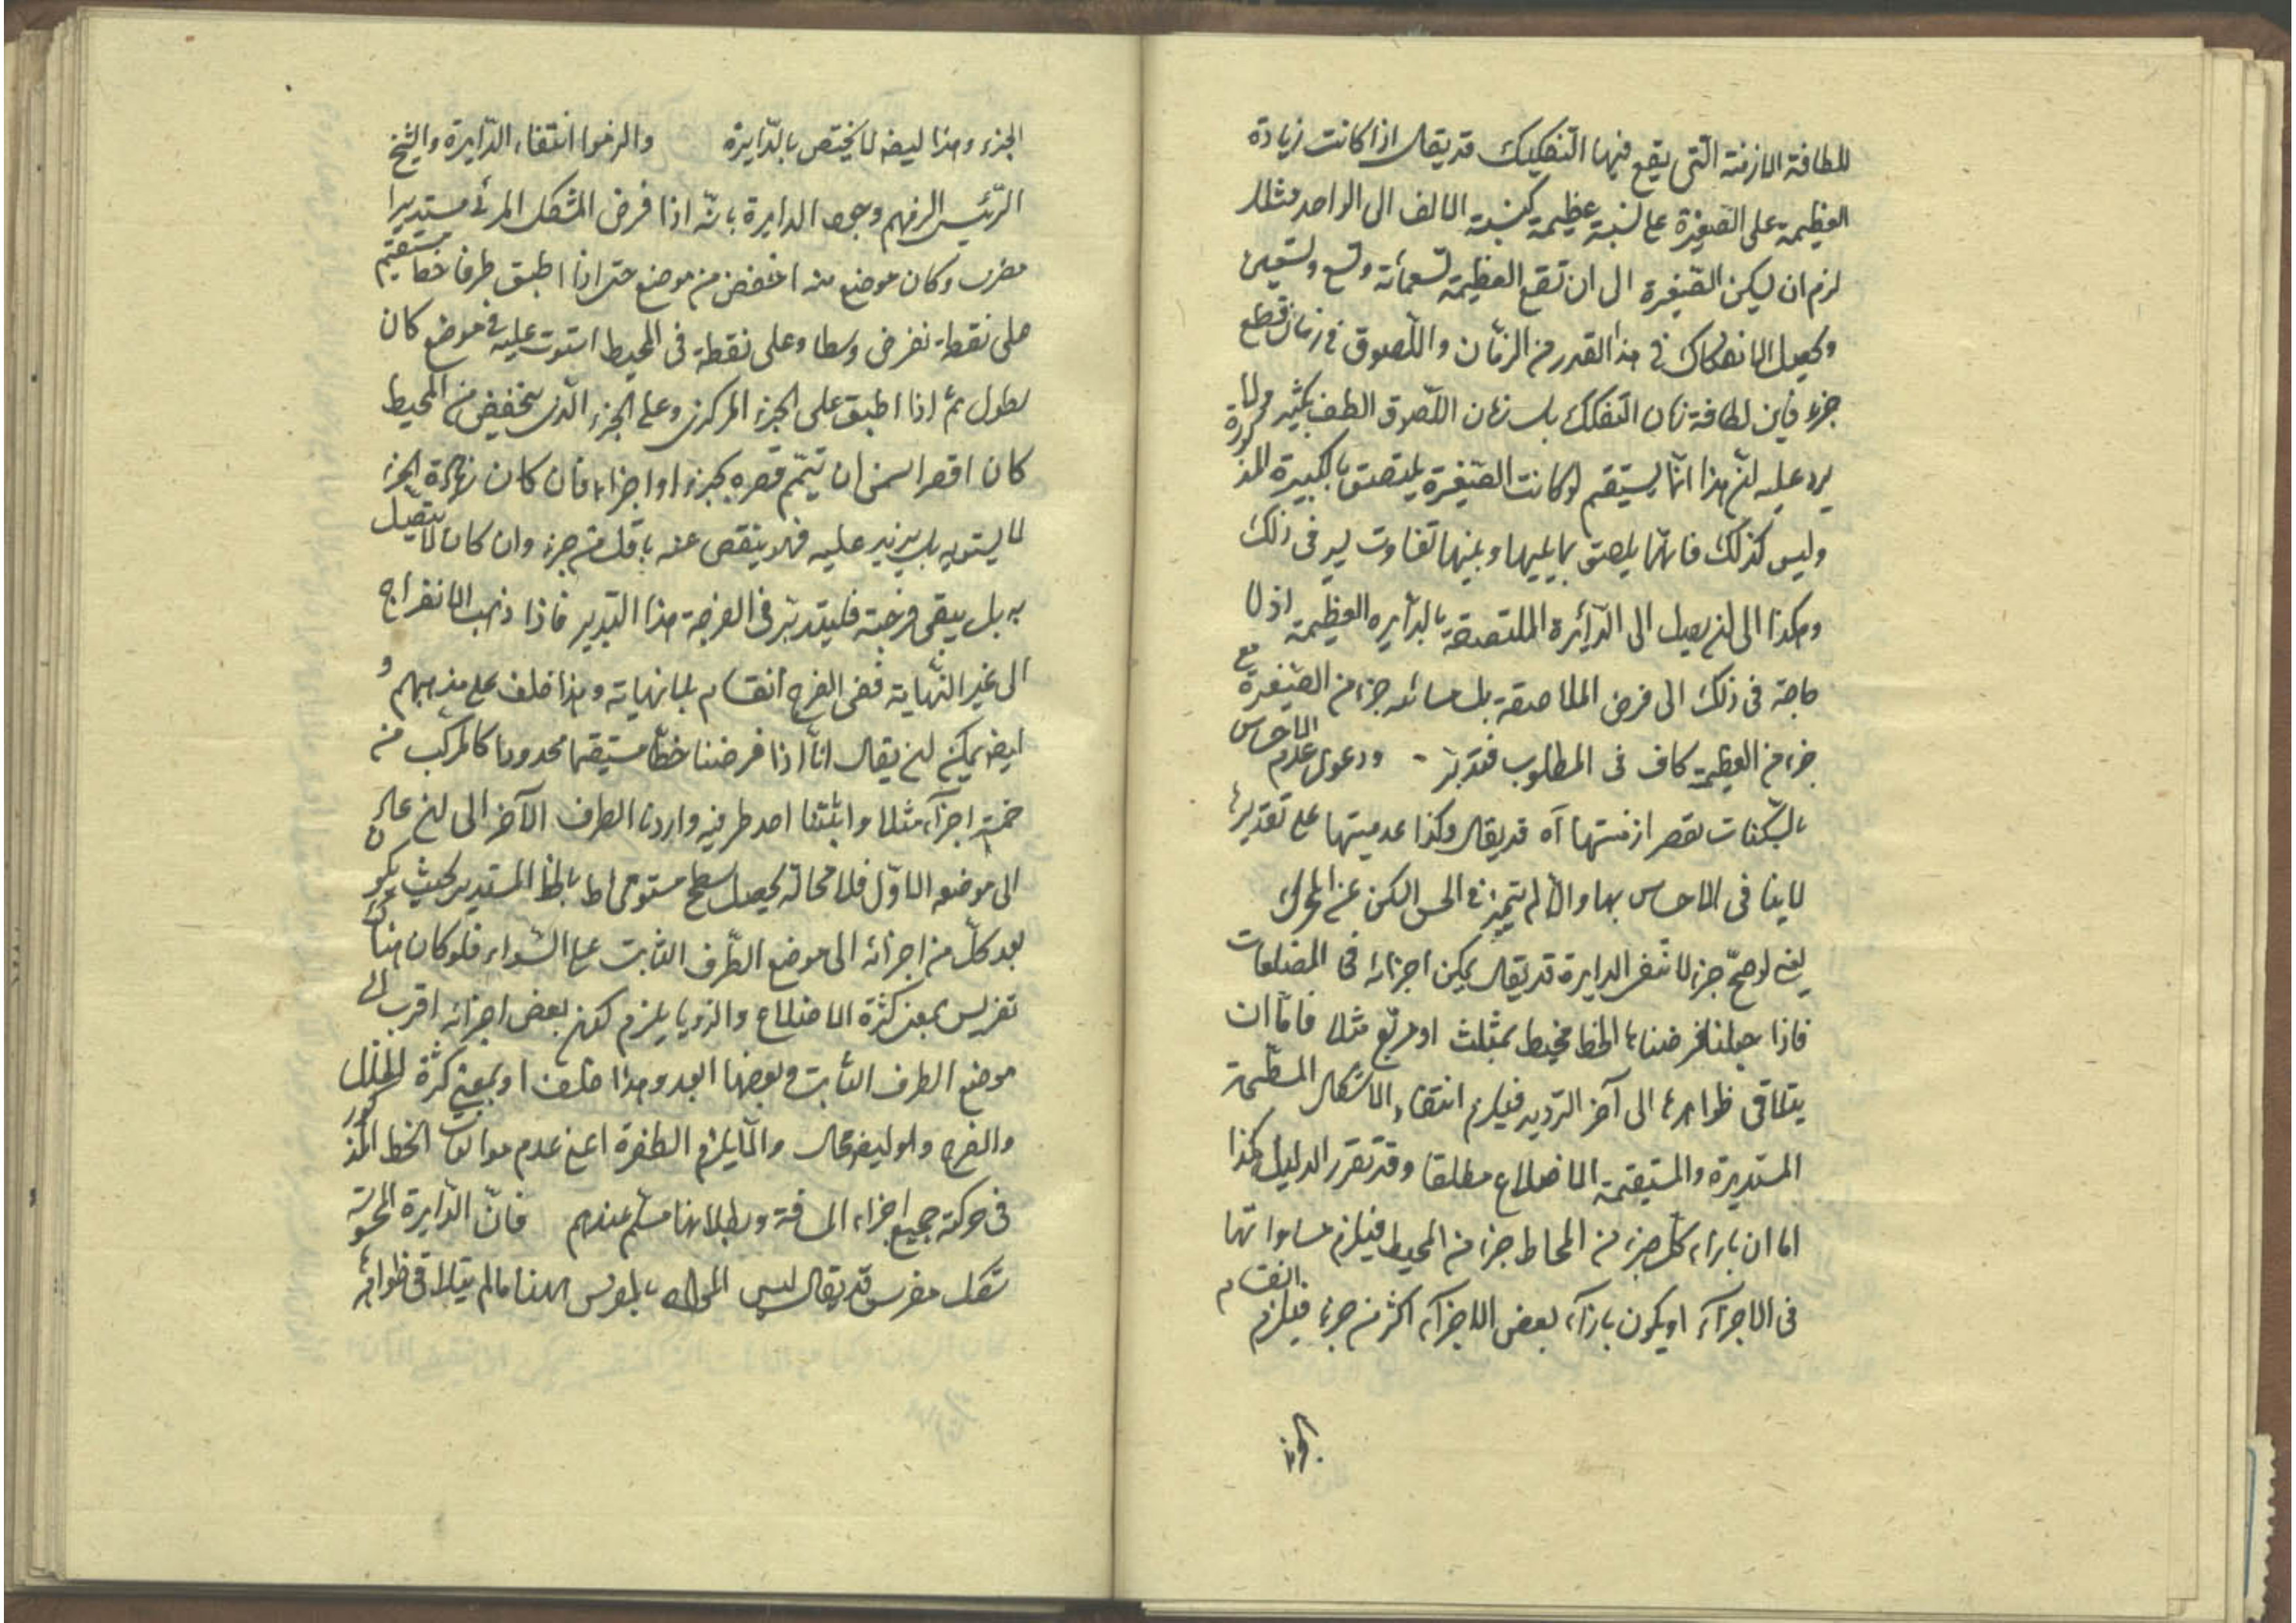 للطافة الازمنة التى يقع فيها التفكيك قد يقال اذا كانت زيادة
العظيمة على الصغيرة على نسبة عظيمة كنسبة الالف الى الواحد مثلا
لزم ان يسكن الصغيرة الى ان تقطع العظيمة تسعمائة وتسع وتسعين
ويحصل الانفكاك فى هذا القدر من الزمان واللصوق فى زمان قطع
جزء فاين لطافة زمان التفكك بل زمان اللصوق الطف بكثير
يرد عليه ان هذا انما يستقيم لو كانت الصغيرة يلتصق بالكبيرة المذكورة
وليس كذلك فانها يلصق بما يليها وبينهما تفاوت يسير فى ذلك
وهكذا الى ان يصل الى الدائرة الملتصقة بالدايره العظيمة اذ لا
حاجة فى ذلك الى فرض الملاصقة بل مسامته جزء من الصغيرة مع
جزء من العظيمة كاف فى المطلوب فتدبر ودعوى عدم الاحساس
بالسكنات لقصر ازمنتها آه قد يقال وكذا عدميتها على تقديرها
لا ينافى الاحساس بها والا لم يتميز فى الحس الساكن عن المتحرك
ايضا لو صح جزء لانتفى الدايرة قد يقال يمكن اجرائه فى المضلعات
فاذا جعلنا فرضنا الخط محيط بمثلث او مربع مثلا فاما ان
يتلاقى ظواهرها الى آخر الترديد فيلزم انتفاء الاشكال المسطحة
المستديرة والمستقيمة الاضلاع مطلقا وقد تقرر الدليل هكذا
اما ان بازاء كل جزء من المحاط جزء من المحيط فيلزم مساواتها
فى الاجزآء او يكون بازآء بعض الاجزآء اكثر من جزء فيلزم انقسام
الجزء
الجزء وهذا ايضا لا يختص بالدايرة والزموا انتفاء الدايرة والشيخ
الرئيس الزمهم وجود الدايرة بانه اذا فرض الشكل المرئى مستديرا
مضرسا وكان موضع منه اخفض من موضع حتى اذا اطبق طرفا خط مستقيم
على نقطة نفرض وسطا وعلى نقطة فى المحيط استوت عليه فى موضع كان
بطول ثم اذا اطبق على الجزء المركزى وعلى الجزء الذى ينخفض من المحيط
كان اقصر امكن ان تيمم قصره بجزء او اجزاء فان كان زيادة الجزء
لا يستويه بل يزيد عليه فهو ينقص عنه باقل من جزء وان كان لا يتصل
به بل يبقى فرجة فليتدبر فى الفرجة هذا التدبير فاذا ذهب الانفراج
الى غير النهاية ففى الفرج انقسام بلا نهاية وهذا خلف على مذهبهم و
ايضا يمكن ان يقال انا اذا فرضنا خطا مستقيما محدودا كالمركب من
خمسة اجزآء مثلا واثبتنا احد طرفيه وادرنا الطرف الآخر الى ان عاد
الى موضعه الاول فلا محالة يحصل سطح مستو محاط بالخط المستدير بحيث يكون
بعد كل من اجزائه الى موضع الطرف الثابت على السواء فلو كان هناك
تضريس بمعنى كثرة الاضلاع والزويا يلزم كون بعض اجزائه اقرب الى
موضع الطرف الثابت وبعضها ابعد وهذا خلف او بمعنى كثرة الخلل
والفرج وهو ايضا محال والا يلزم الطفرة اعنى عدم موافات الخط المذكور
فى حركة جميع اجزاء المسافة وبطلانها مسلم عندهم فان الدايرة المحسوسة
شكل مضرس قد يقال ليس المراد بالمضرس ههنا ما لم يتلاقى ظواهر